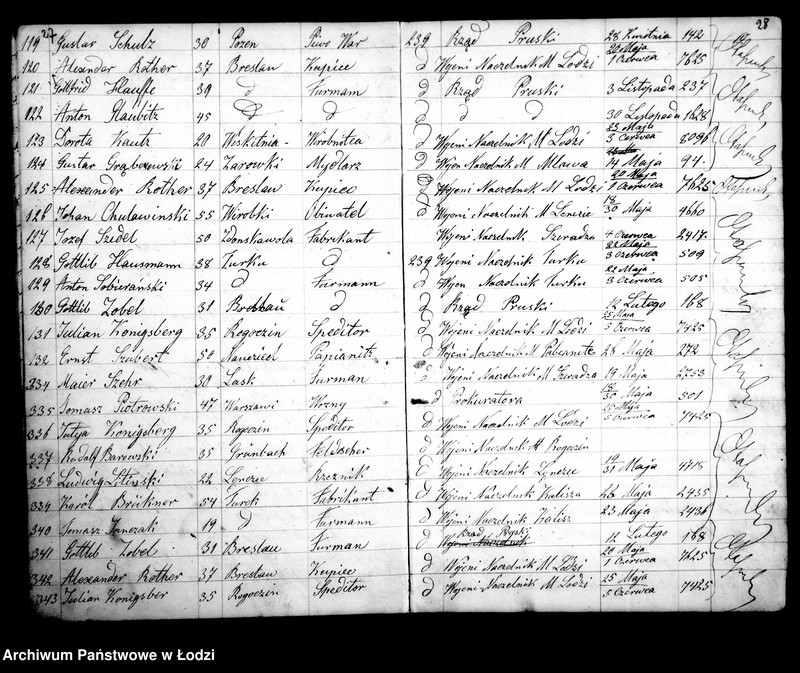 27 28
119 Gustav Schulz 30 Pozen Piwo War 239 Rząd Pruski 28 Kwietnia 142
120 Alexander Rother 37 Breslau Kupiec d Wojeni Naczelnik M Lodzi 20 Maja 1 Czerwca 7625
121 Gottfrid Hauffe 39 d Furmann d Rząd Pruski 3 Listopada 237
122 Anton Haubitz 45 d d d d d 30 Lystopada 1828
123 Dorota Kautz 20 Wrobnitca d Wyjeni Naczelnik M Lodzi 25 Maja 3 Czerwca 8096
124 Gustav Grąbczewski 24 Zarowski Mydlarz d Wojen Naczelnik M Mlawa 14 Maja 94
125 Alexander Rother 37 Breslau Kupiec d Wojeni Naczelnik M Lodzi 20 Maja 1 Czerwca 7625
126 Johan Chulawinski 55 Wirobki Obiwatel d Wojeni Naczelnik M Lenczic 18/30 Maja 4660
127 Jozef Szidel 50 Zdonskawola Fabrikant Wyjeni Naczelnik Szeradza 4 Czerwca 2417
128 Gottlib Hausmann 38 Turku d 239 Wojeni Naczelnik Turku 22 Maja 3 Czerwca 509
129 Anton Sobieranski 34 d Furmann d Wojen Naczelnik Turku 22 Maja 3 Czerwca 505
130 Gottlib Zobel 31 Breslau d d Rząd Pruski 12 Lutego 168
131 Julian Konigsberg 35 Rogoczin Speditor d Wojeni Naczelnik M Lodzi 25 Maja 5 Czerwca 7425
132 Ernst Szubert Papianitz d Wojeni Naczelnik M Pabianitc 28 Maja 272
334 Maier Szehr 30 Lask Furman d Wojeni Naczelnik M Szeradza 19 Maja 2253
335 Tomasz Piotrowski 47 Warszawi Wozny d Prokuratora 18/30 Maja 501
336 Julya Konigsberg 35 Rogozin Speditor d Wojeni Naczelnik M Lodzi 25 Maja 5 Czerwca 7425
337 Rudolf Barewski 35 Grünbach Feldscher d Wojeni Naczelnik M Rogozin
338 Ludwig 22 Lenczic Rzeznik d Wojeni Naczelnik Lenzic 19/31 Maja 4718
339 Karol Brückner 54 Turek Fabrikant d Wojeni Naczelnik Kalisza 22 Maja 2435
340 Tomasz Janczak 19 d Furmann d Wojeni Naczelnik Kalisz 23 Maja 2436
341 Gottlib Zobel 31 Breslau Furman d Rząd Pruski 12 Lutego 168
342 Alexander Rother 37 Breslau Kupiec d Wojeni Naczelnik M Lodzi 20 Maja 1 Czerwca 7625
343 Julian Konigsber 35 Rogoczin Speditor d Wojeni Naczelnik M Lodzi 25 Maja 5 Czerwca 7425
Archiwum Państwowe w Łodzi